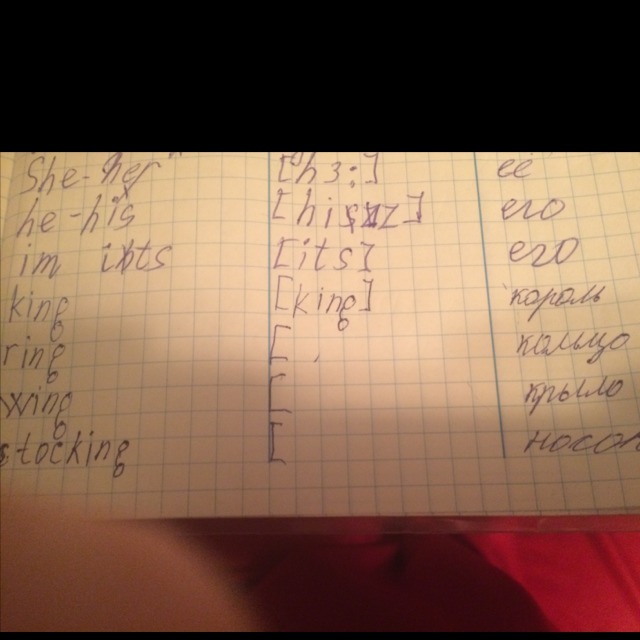 She-her [h3:] её
he-his [hiz] его
im its [its] его
king [king] король
ring [ кольцо
wing [ крыло
stocking [ носок